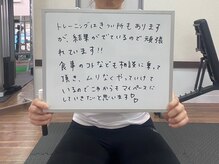 トレーニングはきつい所もあります
が、結果がでているので頑張
れています!!
食事のコトなども相談に乗って
頂き、ムリなくやっていけて
いるのでこれからもマイペースに
していきたいと思います♡